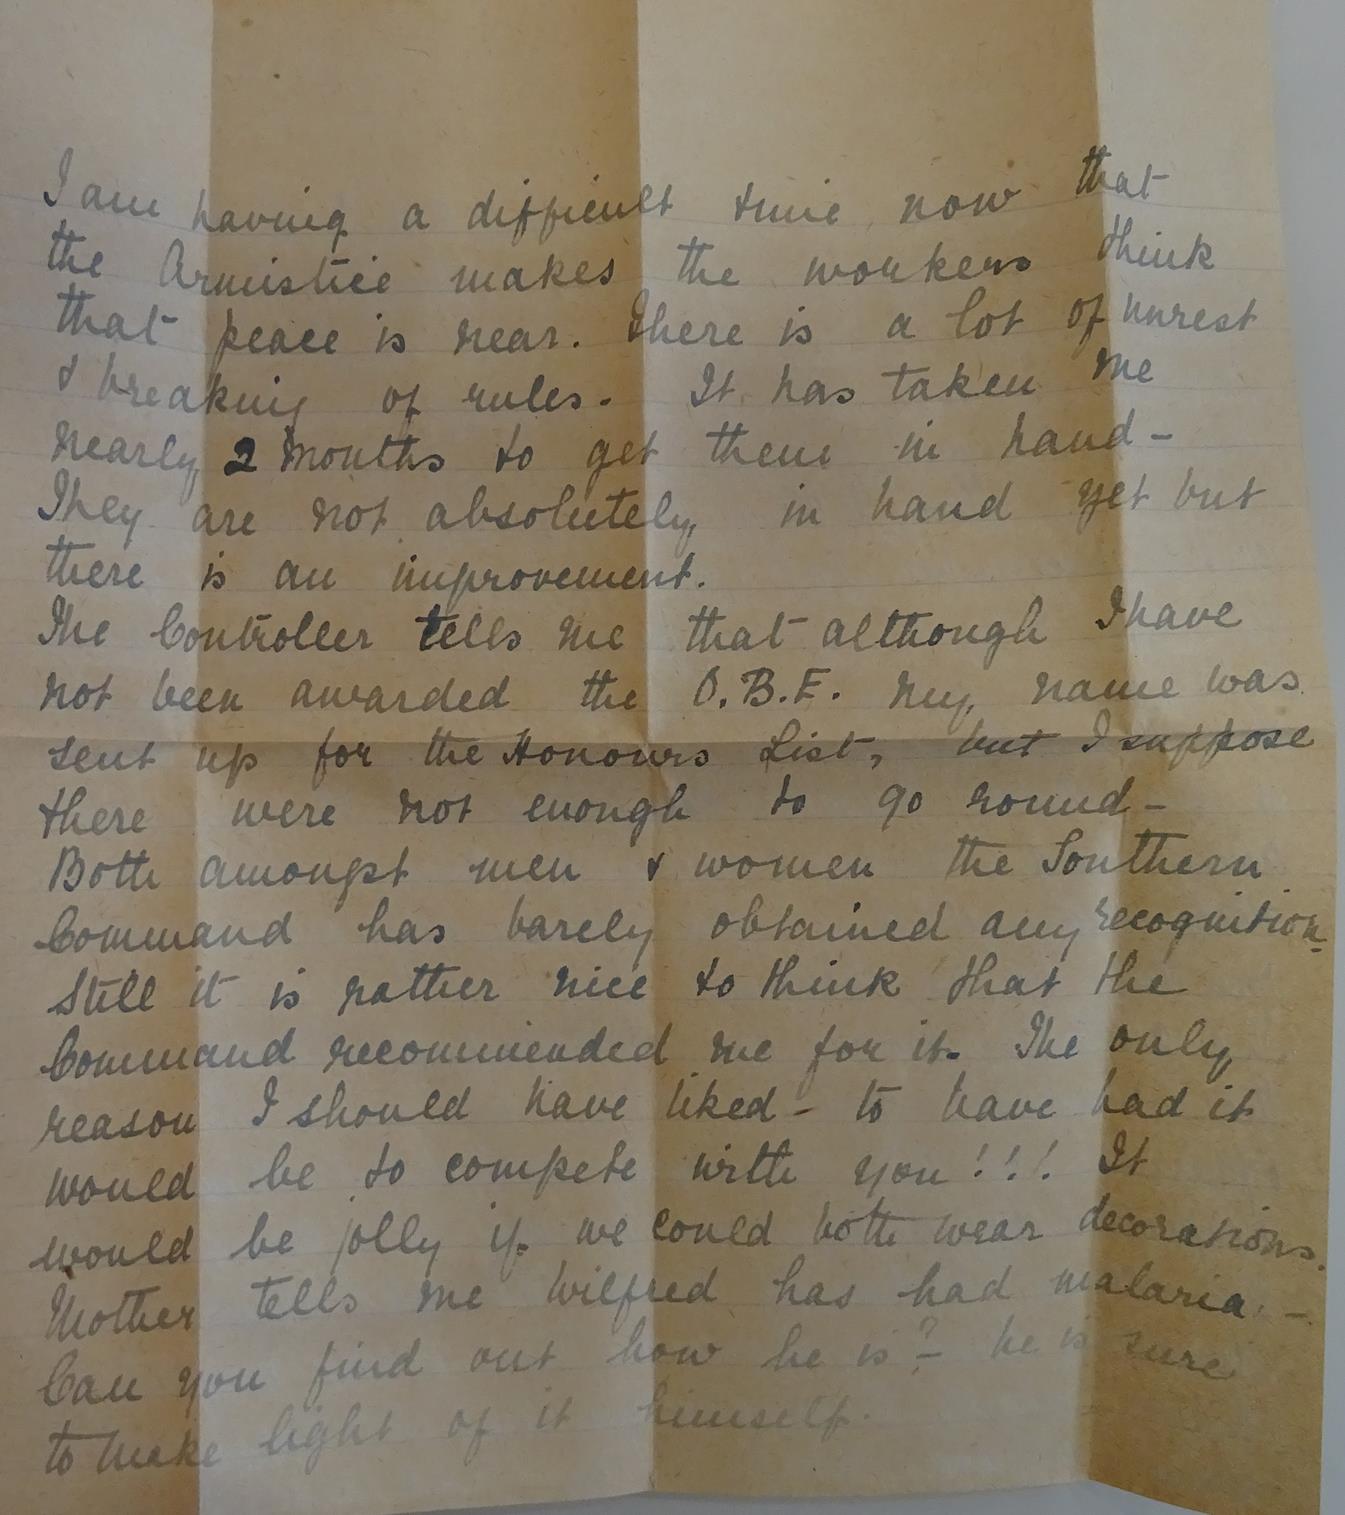 I am having a difficult time now that
the Armistice makes the workers think
that peace is near. There is a lot of unrest
& breaking of rules. It has taken me
nearly 2 months to get them in hand -
They are not absolutely in hand yet but
there is an improvement.
The Controller tells me that although I have
not been awarded the O.B.E. my name was
sent up for the Honours List, but I suppose
there were not enough to go round -
Both amongst men & women the Southern
Command has barely obtained any recognition -
Still it is rather nice to think that the
Command recommended me for it. The only
reason I should have liked - to have had it
would be to compete with you!!! It
would be jolly if we could both wear decorations.
Mother tells me Wilfred has had malaria. -
Can you find out how he is? - he is sure
to make light of it himself.